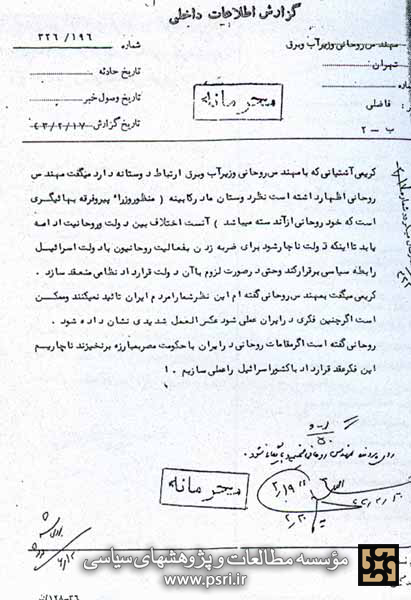 گزارش اطلاعات داخلی
مهندس روحانی وزیر آب و برق
شماره ۳۲۶/۱۹۶
تهران
تاریخ حادثه
تاریخ وصول خبر
فاضلی
محرمانه
ب - ۲
تاریخ گزارش ۴۳/۲/۱۷
کریمی آشتیانی که با مهندس روحانی وزیر آب و برق ارتباط دوستانه دارد میگفت مهندس
روحانی اظهار داشته است نظر دوستان ما در کابینه ( منظور وزراء پیرو فرقه بهائیگری
است که خود روحانی از آندسته میباشد ) آنست اختلاف بین دولت و روحانیت ادامه
یابد تا اینکه دولت ناچار شود برای ضربه زدن بفعالیت روحانیون با دولت اسرائیل
رابطه سیاسی برقرار کند و حتی در صورت لزوم با آن دولت قرارداد نظامی منعقد سازد .
کریمی میگفت بمهندس روحانی گفته ام این نظر شما را مردم ایران تائید نمیکنند و ممکن
است اگر چنین فکری در ایران علی شود عکس العمل شدیدی نشان داده شود .
روحانی گفته است اگر مقامات روحانی در ایران با حکومت مصر بمبارزه برنخیزند ناچاریم
این فکر عقد قرارداد با کشور اسرائیل را عملی سازیم . !
محرمانه
مؤسسه مطالعات و پژوهشهای سیاسی
www.psri.ir